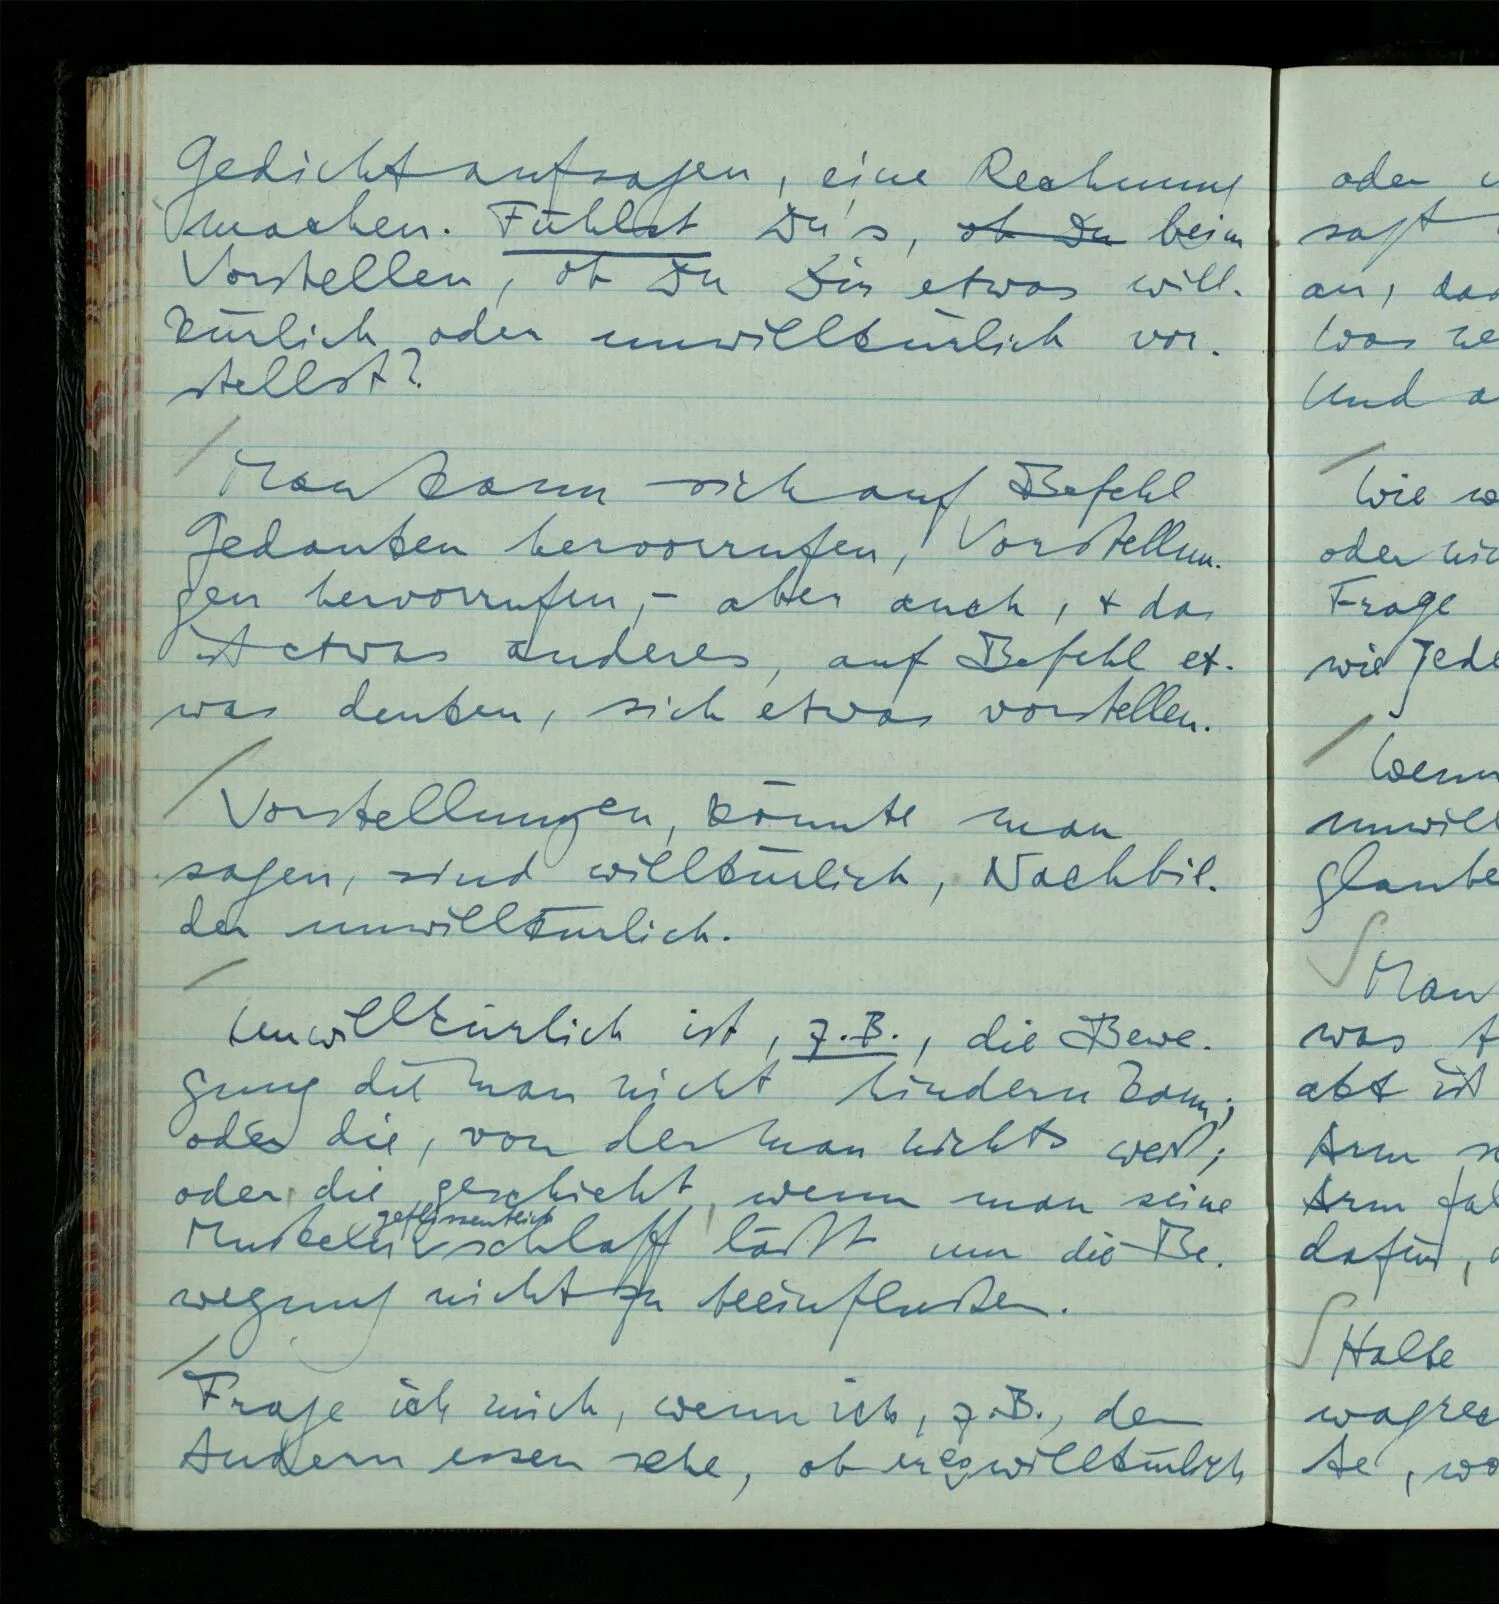 Gedicht aufsagen, eine Rechnung
machen. Fühlst Du's, ob Du beim
Vorstellen, ob Du Dir etwas will-
kürlich oder unwillkürlich vor-
stellst?
Man kann sich auf Befehl
Gedanken hervorrufen, Vorstellun-
gen hervorrufen, – aber auch, + das
ist etwas anderes, auf Befehl et-
was denken, sich etwas vorstellen.
Vorstellungen, könnte man
sagen, sind willkürlich, Nachbil-
der unwillkürlich.
Unwillkürlich ist, z.B., die Bewe-
gung die man nicht hindern kann;
oder die, von der man nichts weiß;
oder die geschieht, wenn man seine
geflissentlich
Muskeln schlaff läßt um die Be-
wegung nicht zu beeinflußen.
Frage ich mich, wenn ich, z.B., den
Andern essen sehe, ob er es willkürlich
oder
sagt
an, das
Was
Und
Wie
oder
Frage
wie jede
Wenn
unwill
glaube
Man
was
akt ist
Arm
Arm
dafür,
Halte
wagrec
te, wo